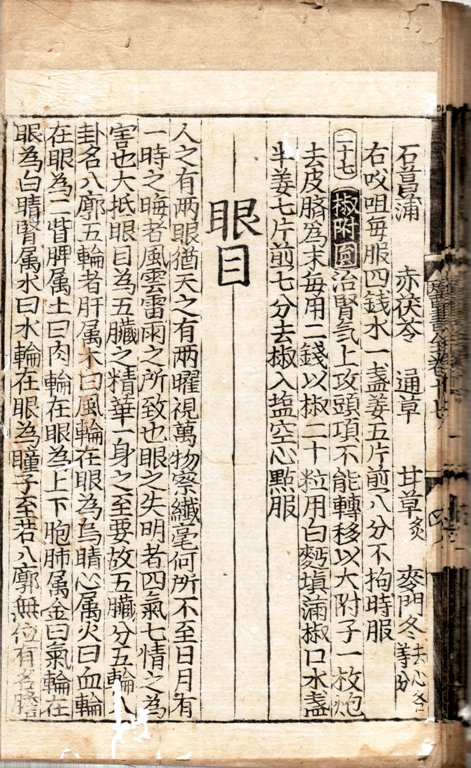 石菖蒲 赤茯苓 通草 甘草炙 麥門冬去心各等分
右㕮咀每服四錢水一盞姜五片煎八分不拘時服
二十七 椒附圓 治腎氣上攻頭項不能轉移以大附子一枚炮
去皮臍為末每用二錢以椒二十粒用白麪填滿椒口水盞
半姜七片煎七分去椒入塩空心點服
眼目
人之有兩眼猶天之有兩曜視萬物察纖毫何所不至日月有
一時之晦者風雲雷雨之所致也眼之失明者四氣七情之為
害也大抵眼目為五臟之精華一身之至要故五臟分五輪八
卦名八廓五輪者肝属木曰風輪在眼為烏睛心属火曰血輪
在眼為二眥脾属土曰肉輪在眼為上下胞肺属金曰氣輪在
眼為白睛腎属水曰水輪在眼為瞳子至若八廓無位有名膽